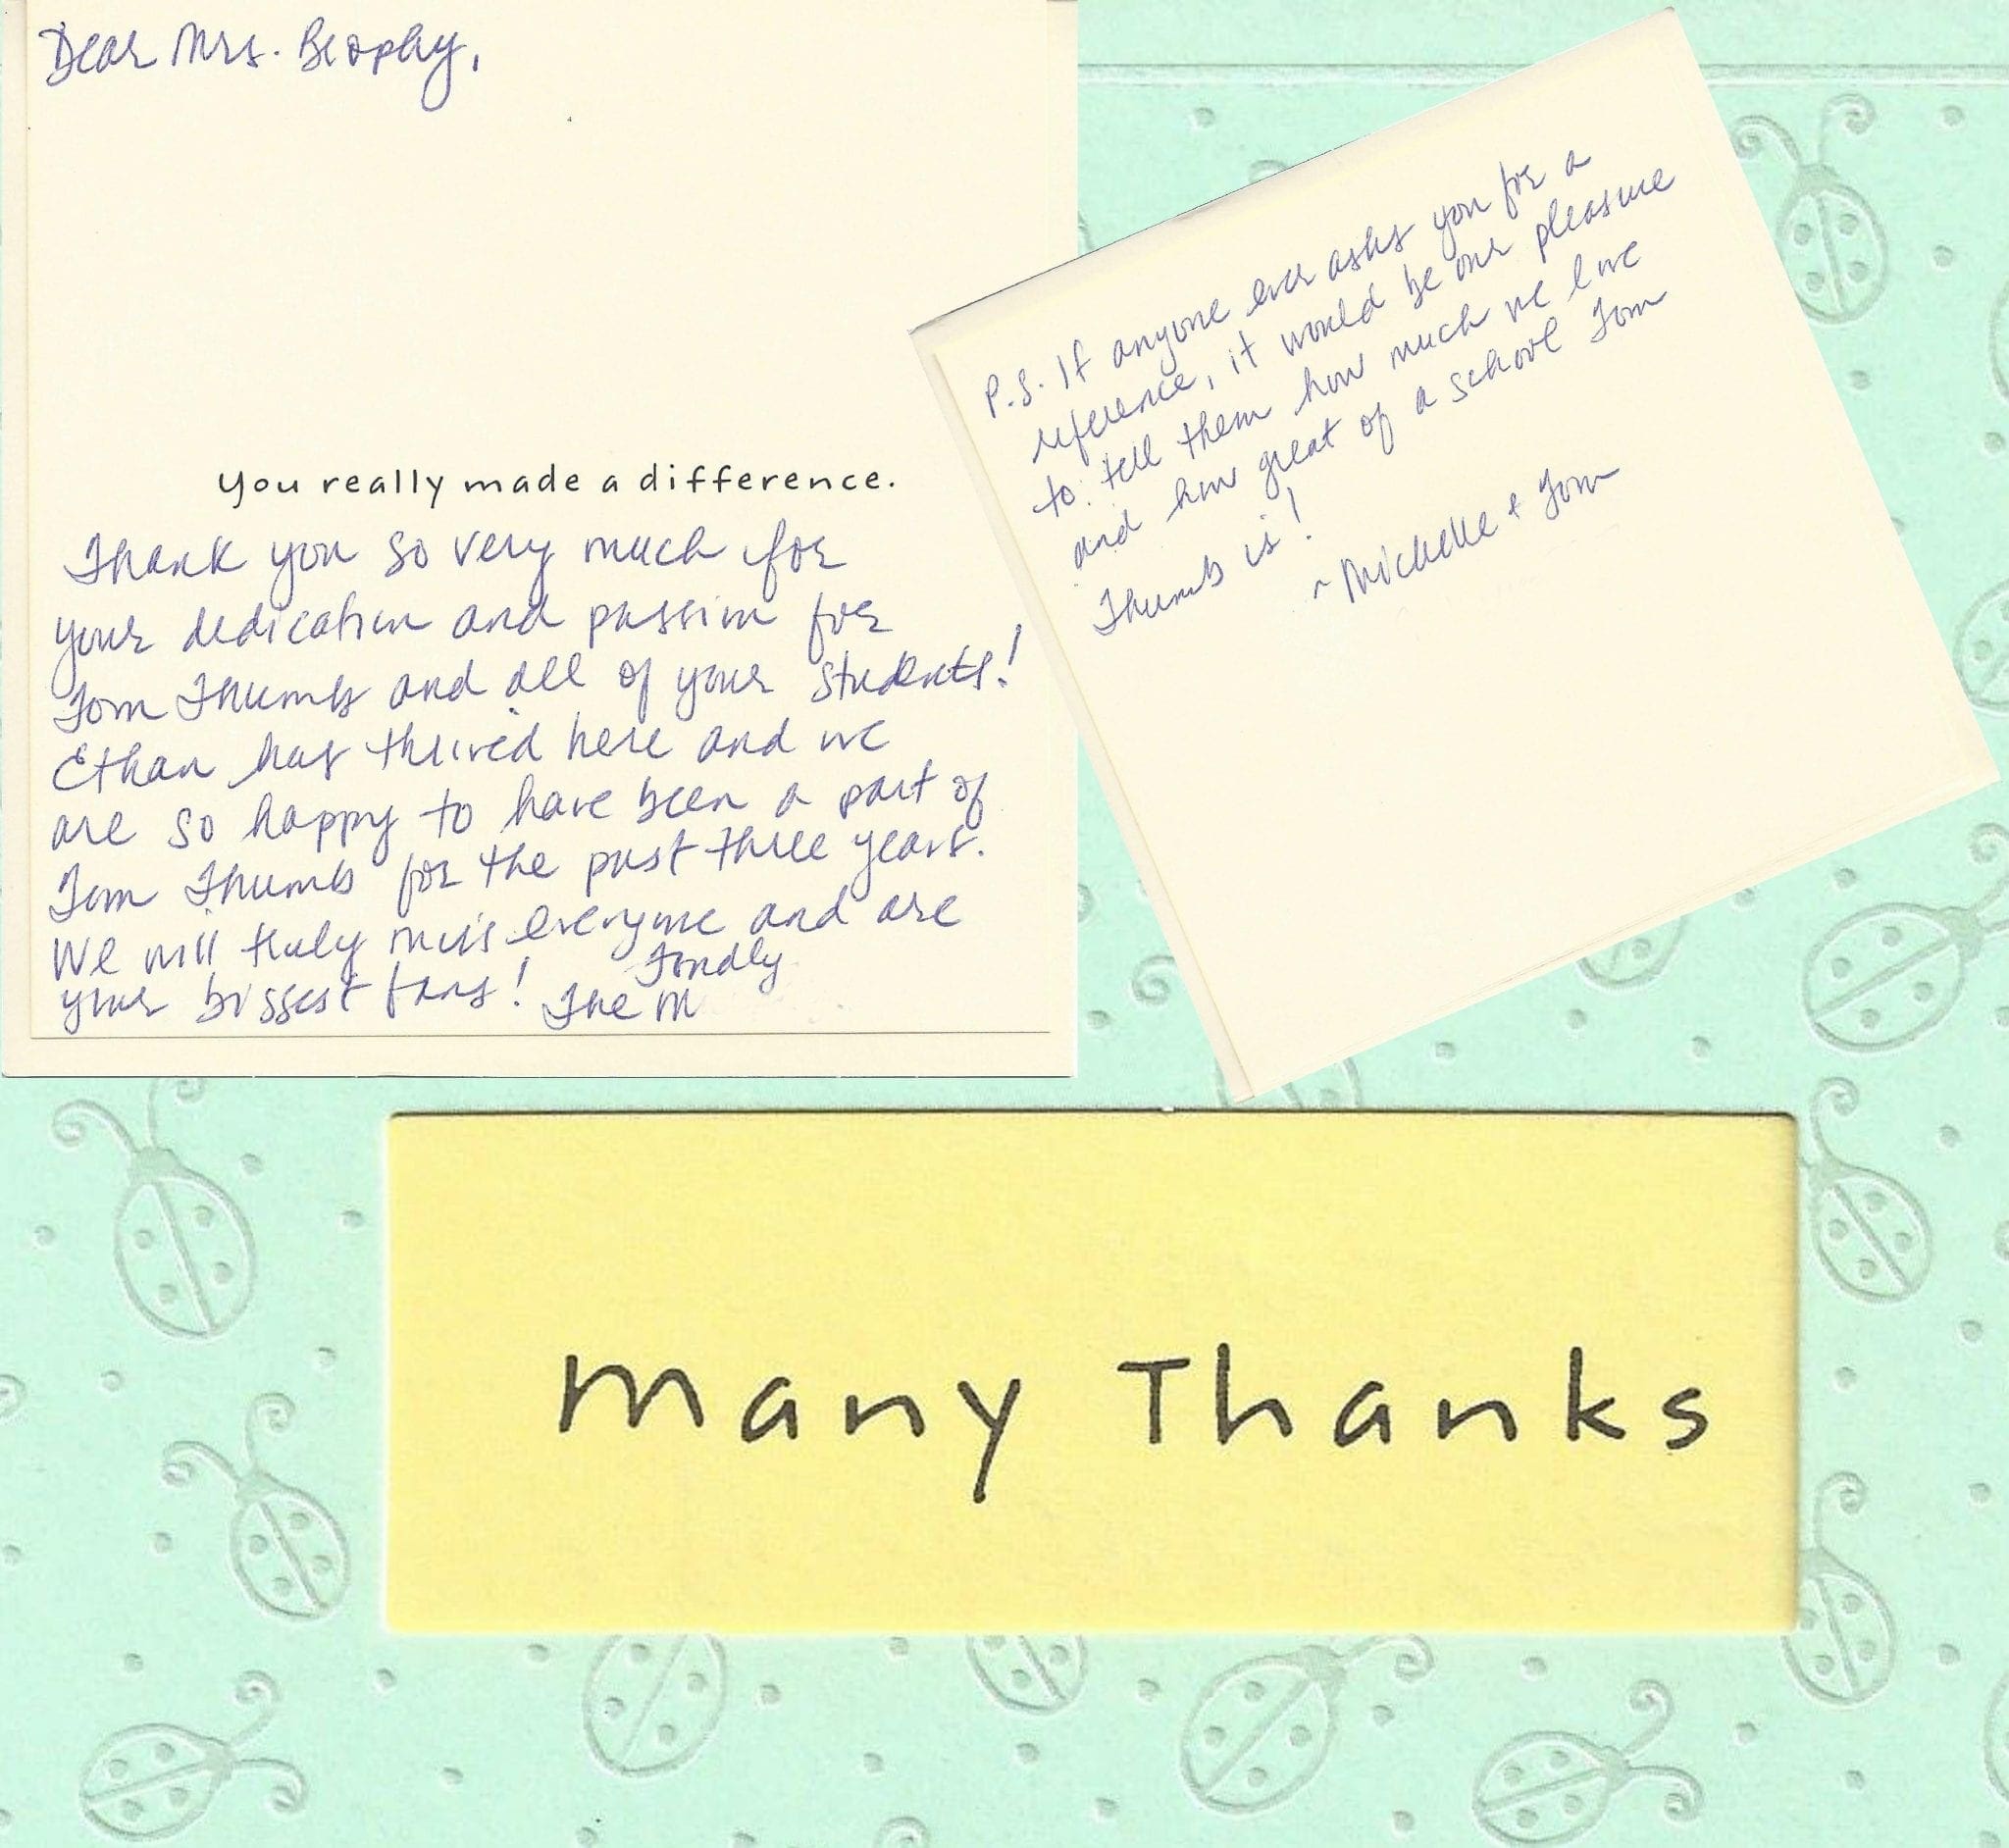 Dear Mrs. Brophy,
you really made a difference.
Thank you so very much for
your dedication and passion for
Tom Thumb and all of your students!
Ethan has thrived here and we
are so happy to have been a part of
Tom Thumb for the past three years.
We will truly miss everyone and are
your biggest fans! Fondly
The M
P.S. If anyone ever asks you for a
reference, it would be our pleasure
to tell them how much we love
and how great of a school Tom
Thumb is!
~ Michelle + Tom
Many Thanks